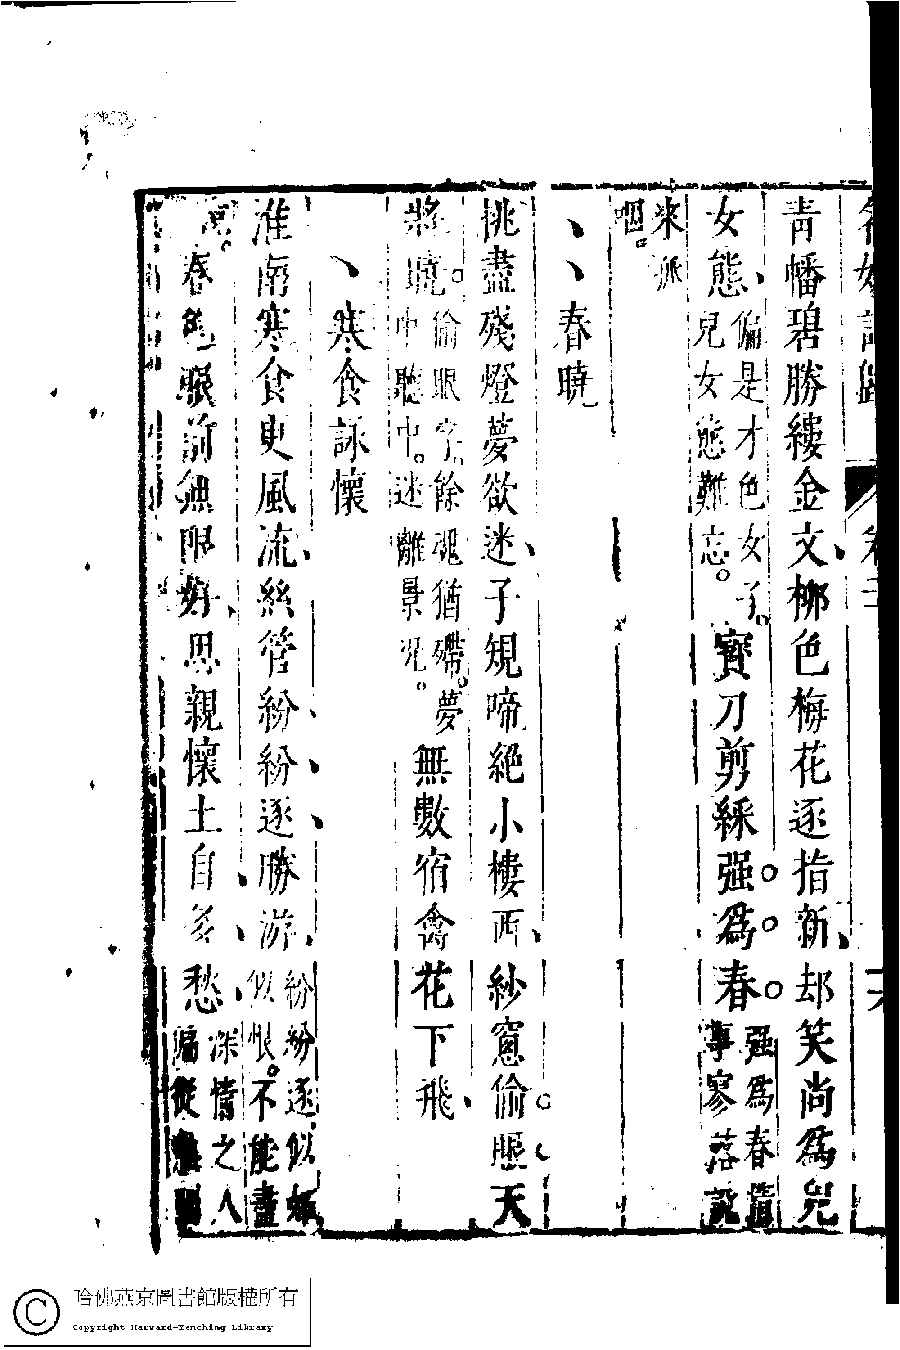 名媛詩歸
青幡碧勝縷金文柳色梅花逐指新却笑尚爲兒
女態
偏是才色女子。
兒女態難忘。
寶刀剪綵强爲春
强爲春
事寥落說
來孤
咽。
春曉
挑盡殘燈夢欲迷子規啼絕小樓西紗窻偷眼天
將曉。
偷眼字餘魂猶殢。夢
中聽中。迷離景况。
無數宿禽花下飛
寒食詠懷
淮南寒食更風流絲管紛紛逐勝游
紛紛逐似妬
似恨。不能盡
寫。
春色眼前無限好思親懷土自多愁
深情之人
偏從無
哈佛燕京圖書館版權所有
Copyright Harvard-Yenching Library